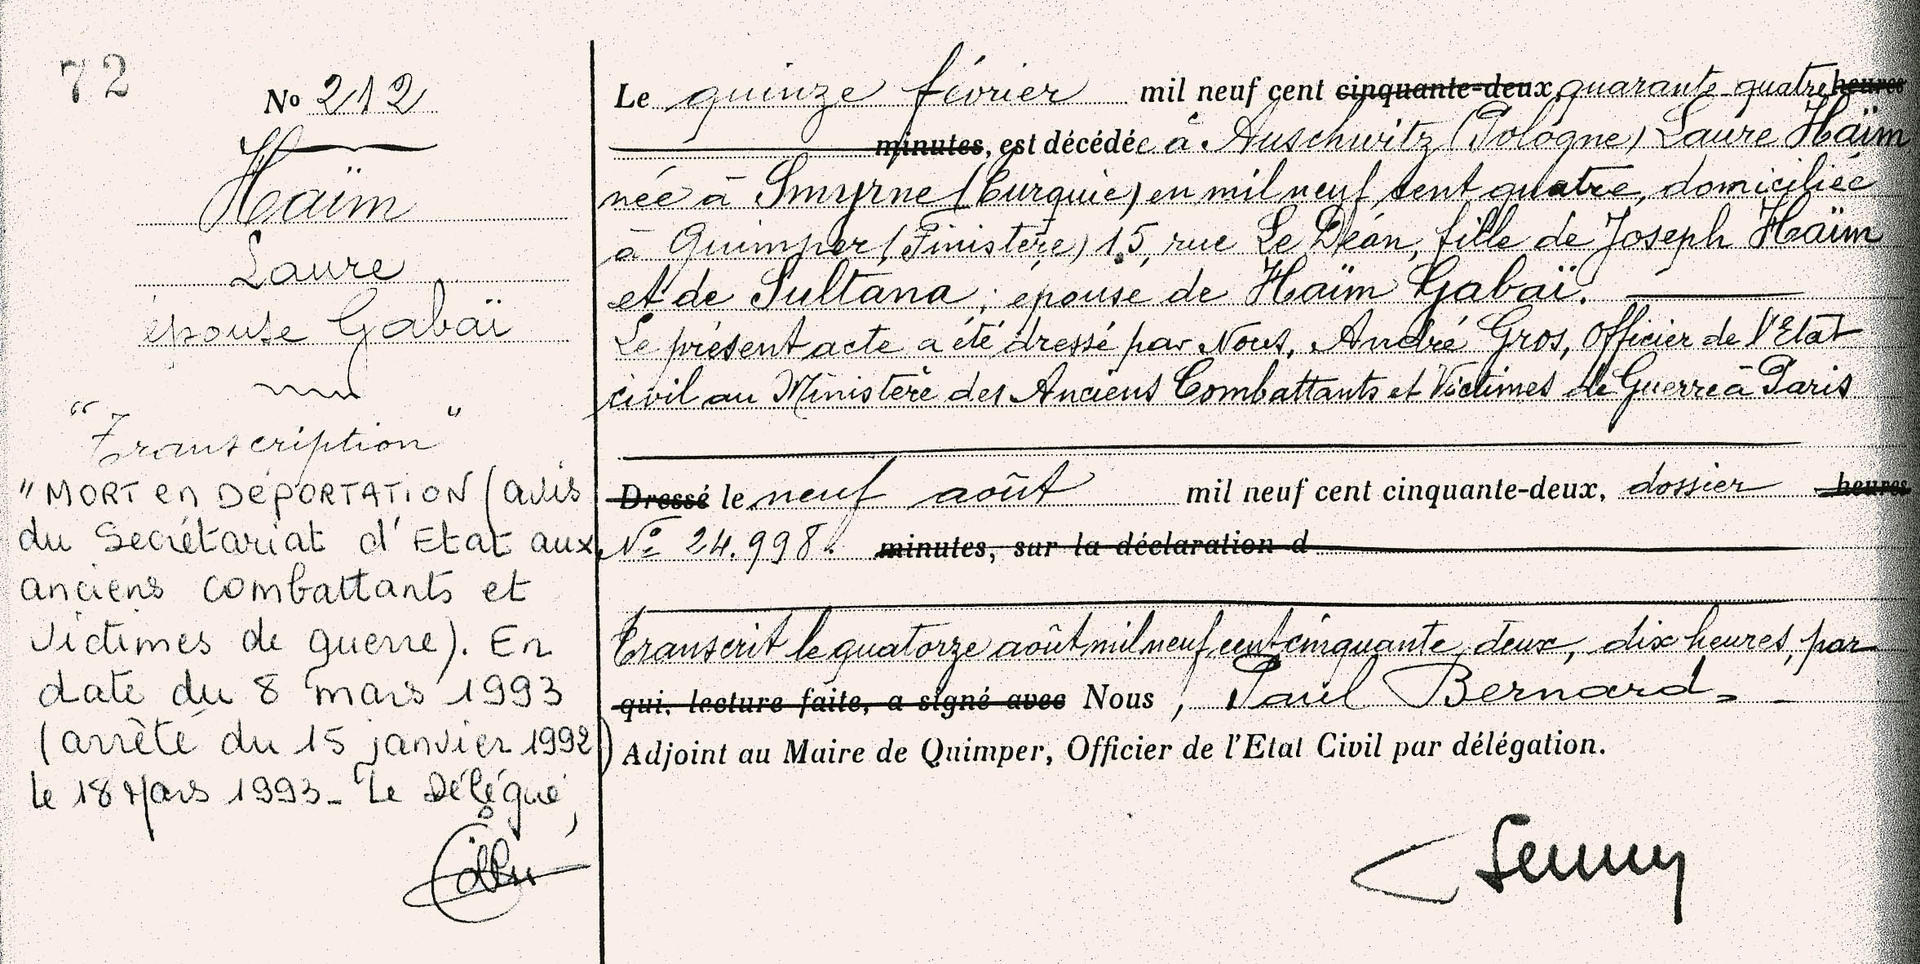 72
No 212
Haïm
Laure
épouse Gabaï
"Transcription"
"MORT en DÉPORTATION (avis
du Secrétariat d'Etat aux
anciens combattants et
victimes de guerre). En
date du 8 mars 1993
(arrêté du 15 janvier 1992)
le 18 Mars 1993_ Le Délégué,
Le quinze février mil neuf cent cinquante-deux, quarante-quatre heures
minutes, est décédée à Auschwitz (Pologne) Laure Haïm
née à Smyrne (Turquie) en mil neuf cent quatre, domiciliée
à Quimper (Finistère) 15, rue Le Déan, fille de Joseph Haïm
et de Sultana ; épouse de Haïm Gabaï.
Le présent acte a été dressé par Nous, André Gros, Officier de l'Etat
civil au Ministère des Anciens Combattants et Victimes de Guerre à Paris
Dressé le neuf août mil neuf cent cinquante-deux, dossier heures
No 24.998. minutes, sur la déclaration d
Transcrit le quatorze août mil neuf cent cinquante deux, dix heures, par
qui, lecture faite, a signé avec Nous, Paul Bernard
Adjoint au Maire de Quimper, Officier de l'Etat Civil par délégation.